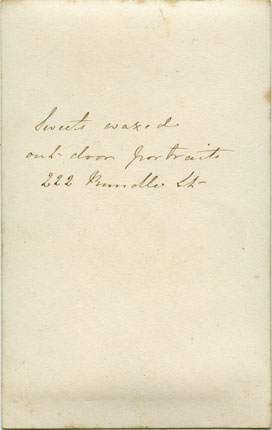 Sweets waxed
out-door portraits
222 Rundle St